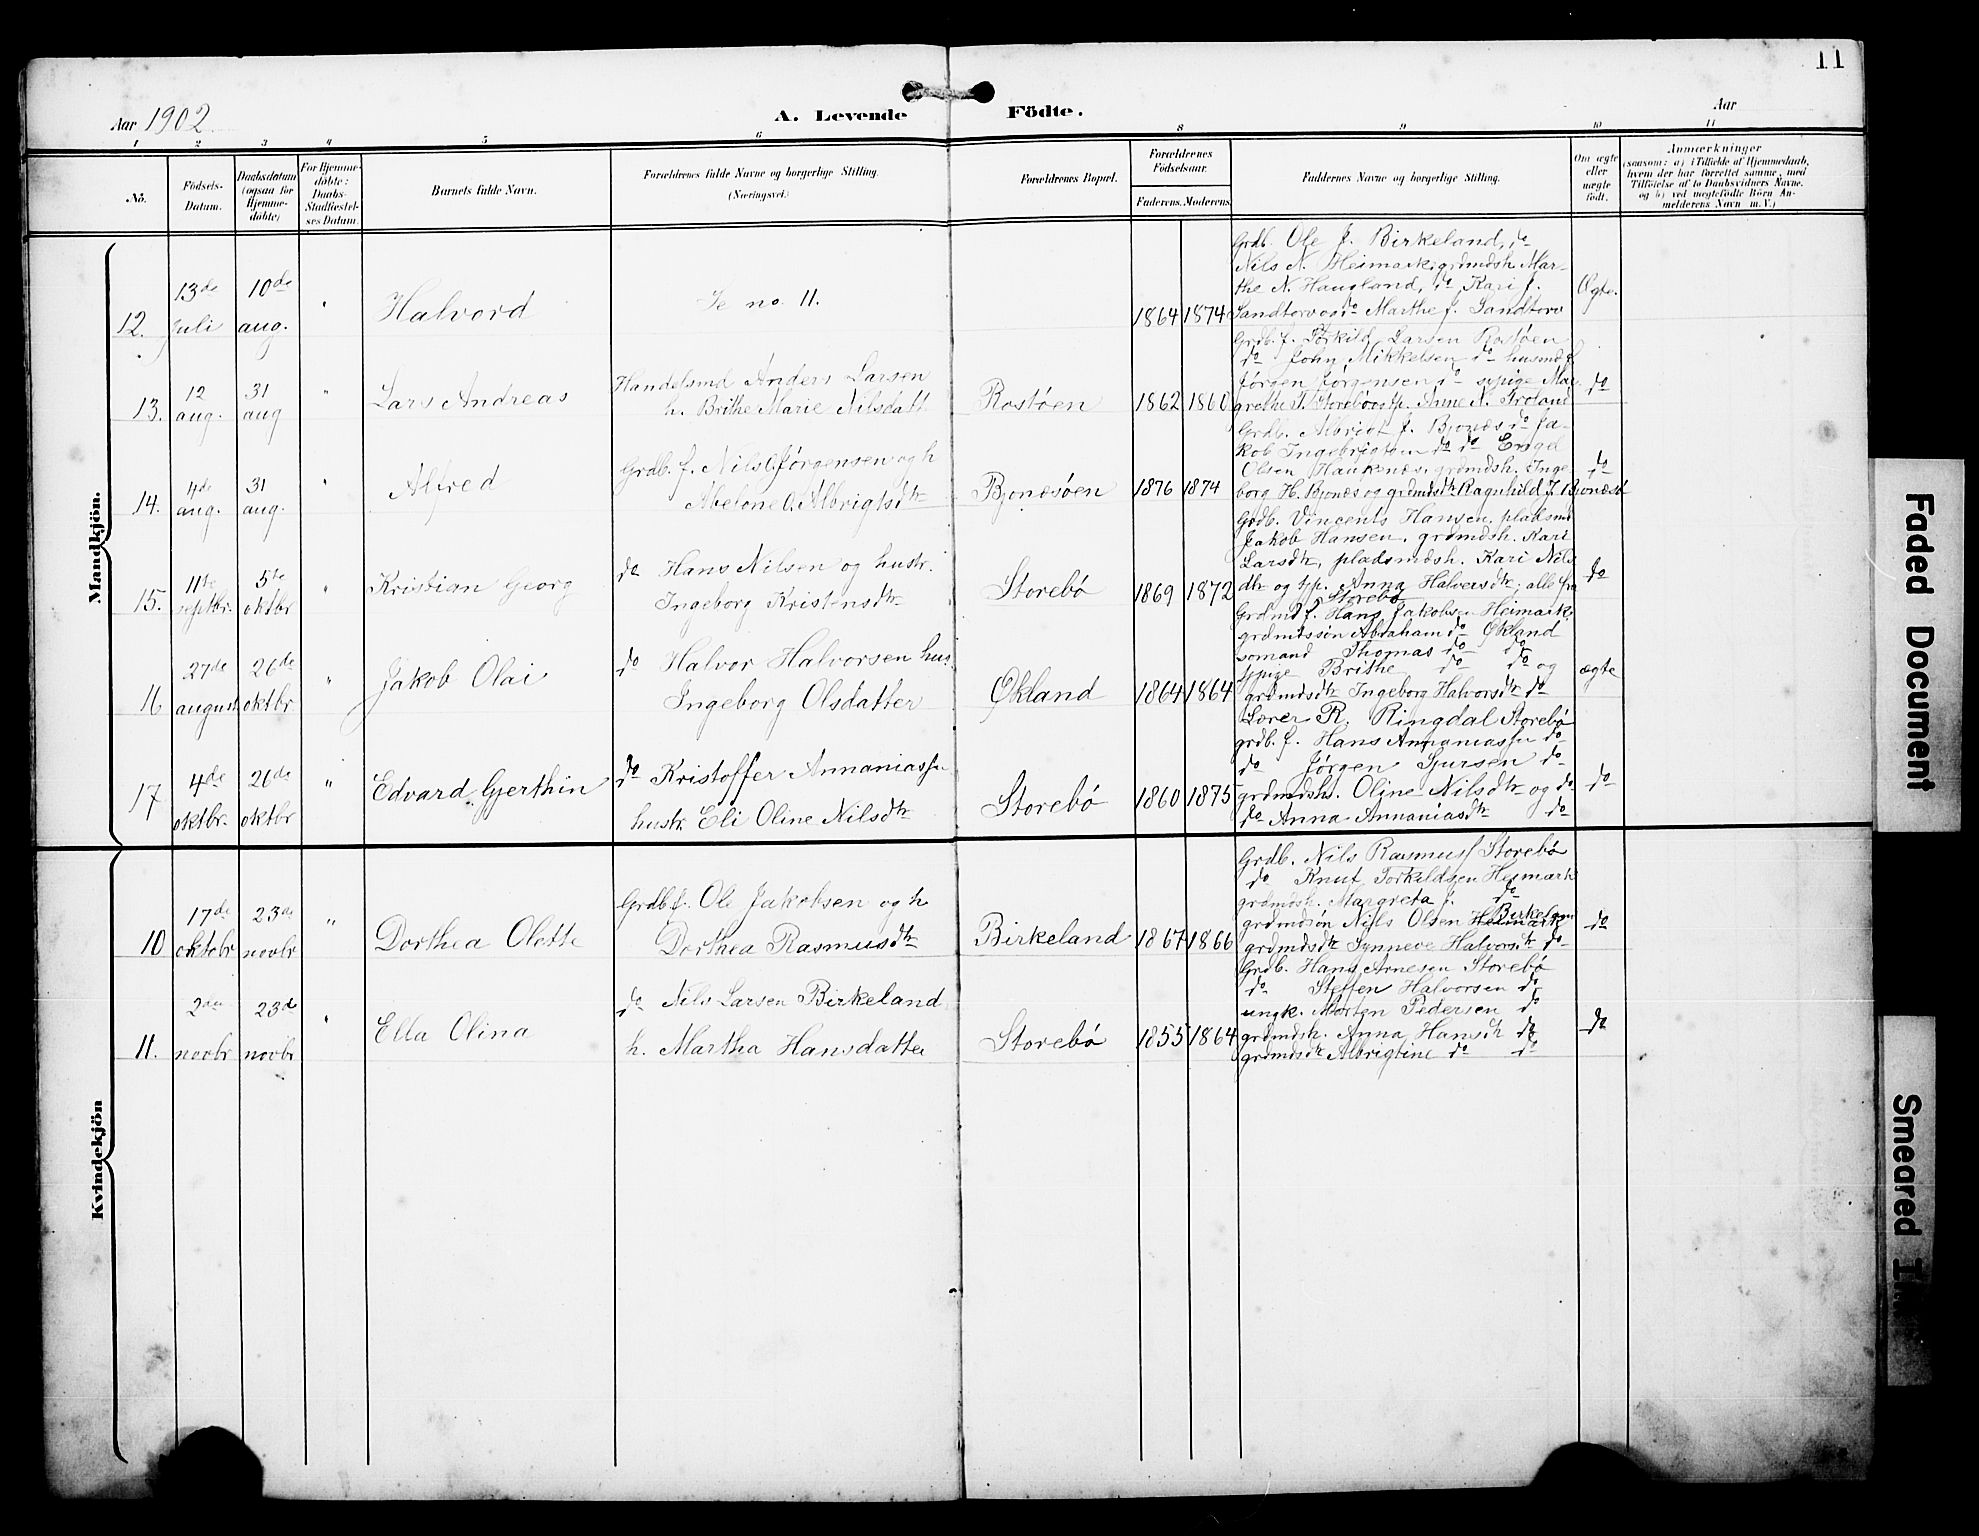 11
Aar 1902
A. Levende Födte.
Aar
1 2 3 4 5 6 8 9 10 11
No.
Födsels-
Datum.
Daabsdatum
(ogsaa for
Hjemme-
döbte)
For Hjemme-
döbte:
Daabs-
Stadfæstel-
ses Datum.
Barnets fulde Navn.
Forældrenes fulde Navne og borgerlige Stilling.
(Næringsvei.)
Forældrenes Bopæl.
Forældrenes
Födselsaar.
Faderens. Moderens.
Faddernes Navne og borgerlige Stilling.
Om ægte
eller
uægte
födt.
Anmærkninger
(saasom: a) i Tilfælde af Hjemmedaab,
hvem der har forrettet samme, med
Tilföielse af to Daabsvidners Navne.
og b) ved uægtefödte Börn An-
melderens Navn m. V.)
Mandkjön.
12.
13de
juli
10de
aug.
"
Halvord
Se no. 11.
1864 1874
Grdb. Ole J. Birkeland, do
Nils N. Heimark, grdmdsh. Mar-
the N. Haugland, do Kari J.
Sandtorv og do Marthe J. Sandtorv
Ægte.
13.
12
aug.
31
aug
"
Lars Andreas
Handelsmd Anders Larsen
h. Brithe Marie Nilsdatt.
Rostøen
1862 1860
Grdb. f. Torkild Larsen Rostøen
do John Mikkelsen do husmd f.
Jørgen Jørgensen do pige Mar-
grethe T. Storebø og tp. Anne N. Troland
do
14.
4de
aug.
31
aug.
"
Alfred
Grdb. f. Nils O. Jørgensen og h
Abelone O. Albrigtsdtr
Bjonesøen
1876 1874
Grdb. Albrigt J. Bjonæs do Ja-
kob Ingebrigtsen do do Engel
Olsen Haukenæs, grdmdsh. Inge-
borg H. Bjonæs og grdmdsdtr Ragnhild J. Bjonæsø
do
15.
11te
septbr.
5te
oktbr
"
Kristian Georg
do Hans Nilsen og hustr.
Ingeborg Kristensdtr
Storebø
1869 1872
Grdb. Vincents Hansen, pladsmd
Jakob Hansen, grdmdsh. Kari
Larsdtr, pladsmdsh. Kari Nils
dtr og tp. Anna Halversdtr; alle fra
Storebø
do
16
27de
august
26de
oktbr
"
Jakob Olai
do Halvor Halvorsen hus.
Ingeborg Olsdatter
Økland
1864 1864
Grdmd f. Hans Jakobsen Heimark
grdmdssøn Abraham do Økland
sømand Thomas do do
tjpige Brithe do do og
grdmdsdtr Ingeborg Halvorsdtr do
ægte
17
4de
oktbr.
26de
oktbr
"
Edvard Gjerthin
do Kristoffer Annaniassen
hustr. Eli Oline Nilsdtr
Storebø
1860 1875
Lærer R. Ringdal Storebø
grdb. f. Hans Annaniassen do
do Jørgen Sjursen do
grdmdsh. Oline Nilsdtr og do
do Anna Annaniasdtr do
do
Kvindekjön
10
17de
oktobr
23de
novbr
"
Dorthea Olette
Grdb. f. Ole Jakobsen og h
Dorthea Rasmusdtr
Birkeland
1867 1866
Grdb. Nils Rasmuss Storebø
do Knut Torkildsen Heimark
grdmdsh. Margreta J. do
grdmdsøn Nils Olsen Heimark Birkeland
grdmdsdtr Synneve Halvorsdtr do
do
11.
2den
novbr
23de
novbr
"
Ella Olina
do Nils Larsen Birkeland,
h. Martha Hansdatter
Storebø
1855 1864
Grdb. Hans Arnesen Storebø
do Steffen Halvorsen do
ungk. Morten Pedersen do
grdmdsh. Anna Hansdtr do
grdmdsdtr Albrigtine do do
do
Faded Document
Smeared